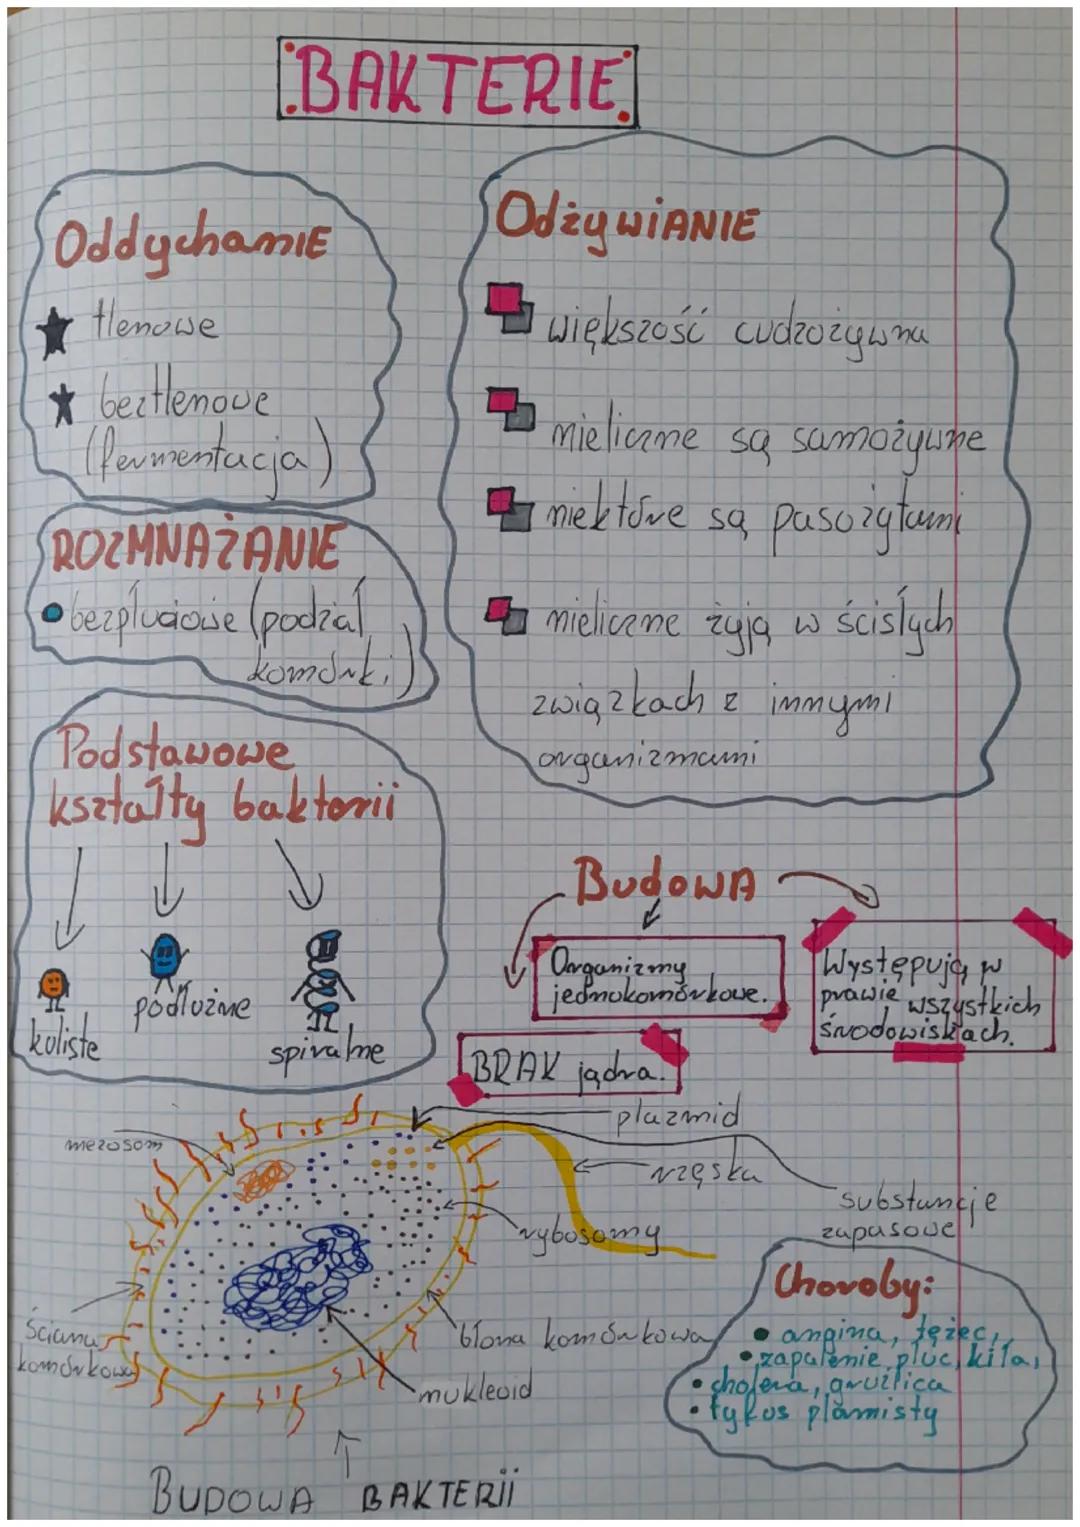 BAKTERIE
OddychanIE
tlenowe
beztlenowe
(fermentacja)
ROZMNAŻANIE
bezpłciowe (podział
komórki)
Podstawowe
kształty bakterii
kuliste
podłużne
spiralne
OdżywiANIE
większość cudzożywna
nieliczne są samożywne
niektóre są pasożytami
nieliczne żyją w ścisłych
związkach z innymi
organizmami
BudowA
Organizmy
jednokomórkowe.
Występują w
prawie wszystkich
środowiskach.
BRAK jądra.
mezosom
plazmid
rzęska
substancje
zapasowe
rybosomy
ściana
komórkowa
błona komórkowa
nukleoid
BUDOWA BAKTERii
Choroby:
angina, tężec,
zapalenie płuc, kiła,
cholera, gruźlica
tyfus plamisty